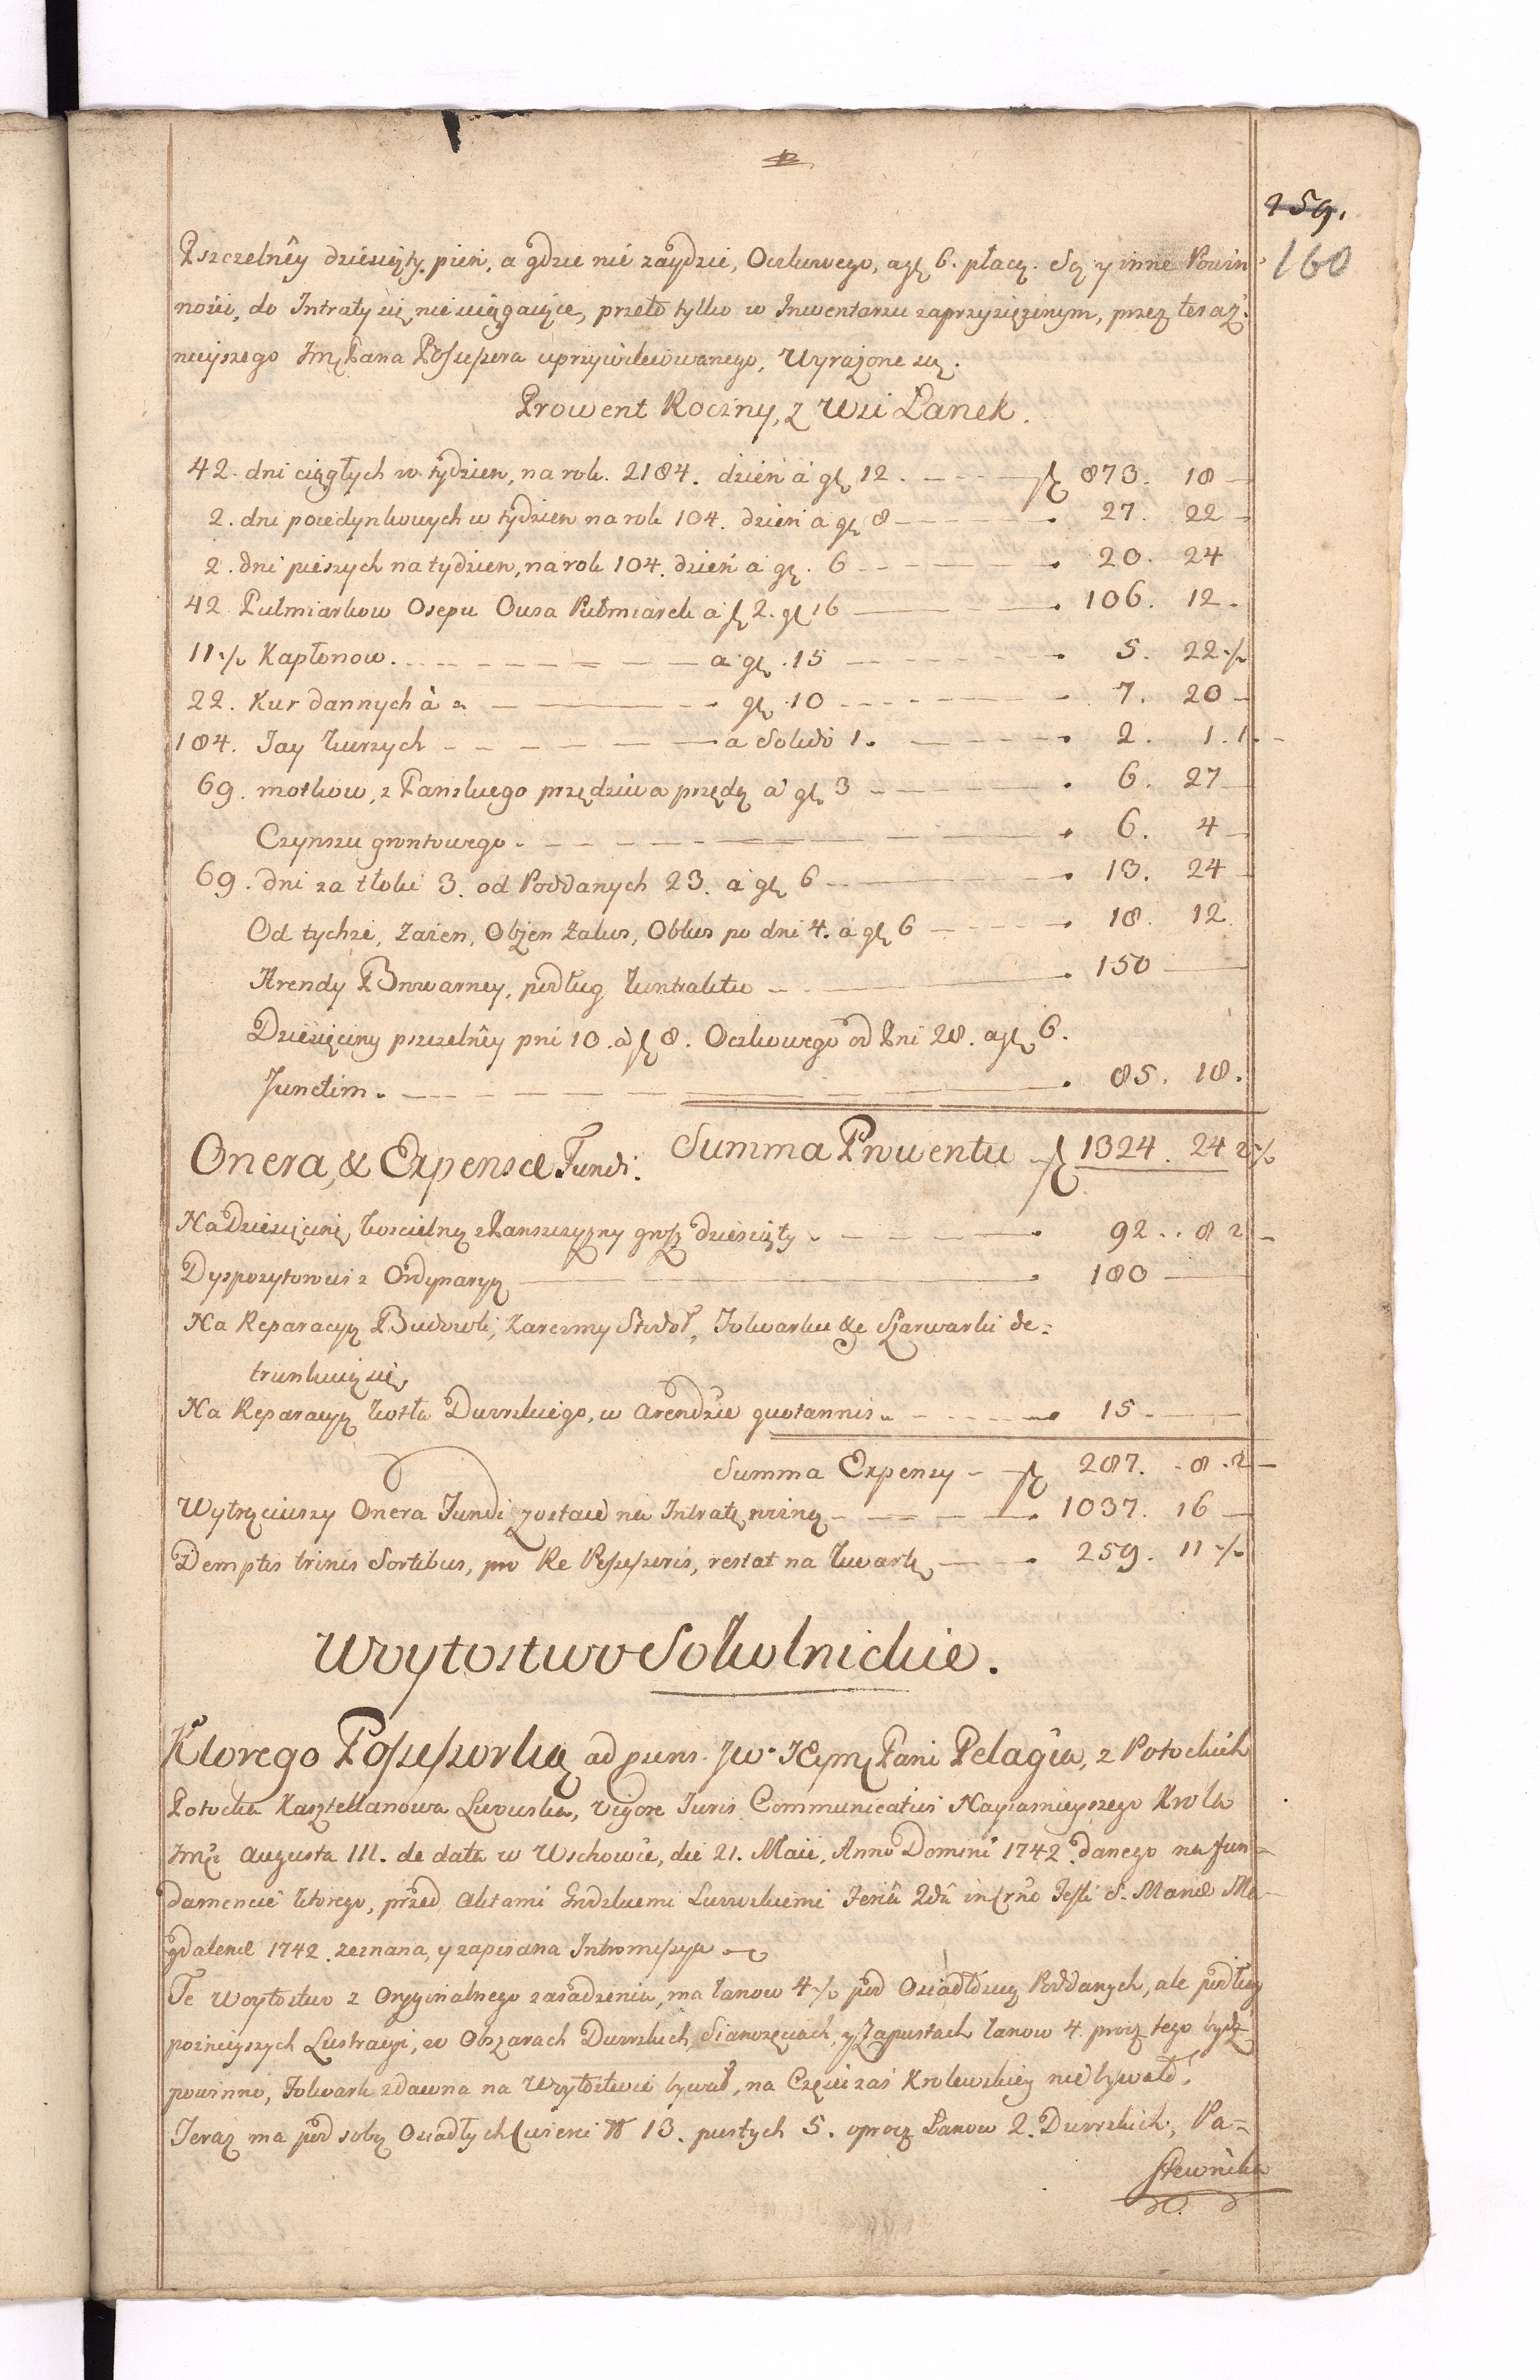 159.
160
Pszczelney dziesięty pień, a gdzie nie zaydzie, Oczkowego, a gr 6. płacą. Są y inne Powin-
ności, do Intraty się nie sciągaiące, przeto tylko w Inwentarzu zaprzysiężonym, przez teraz-
nieyszego Jmć Pana Possessora uprzywileiowanego, Wyrażone są.
Prowent Roczny, z Wsi Łanek.
42. dni ciągłych w tydzien, na rok. 2184. dzień a gr 12. fl 873. 18
2. dni poiedynkowych w tydzien na rok 104. dzień a gr 8 27. 22
2. dni pieszych na tydzien, na rok 104. dzień a gr. 6 20. 24
42 Pułmiarkow Osepu Owsa Pułmiarek a fl 2. gr 16 106. 12.
11 ·/. Kapłonow. a gr. 15 5. 22 ·/.
22. Kur dannych à gr. 10 7. 20
184. Jay kurzych a Solido 1. 2. 1. 1.
69. motkow, z Panskiego przędziwa przędą a gr 3 6. 27
Czynszu gruntowego. 6. 4
69. dni za tłoki 3. od Poddanych 23. a gr 6 13. 24
Od tychze, Zażen, Obżen Zakos, Obkos po dni 4. a gr 6 18. 12
Arendy Browarney, podług kontraktu 150
Dziesięciny pszczelney pni 10. a fl 8. Oczkowego od Pni 28. a gr 6.
Junctim. 85. 18.
Onera, & Expensæ Fundi. Summa Prowentu fl 1324. 24 2 ·/.
Na Dziesięcinę koscielną z Panszczyzny grosz dziesięty 92. 8 2
Dyspozytorowi z Ordynaryą 180
Na Reparacyą Budowli, Karczmy Stodoł, Folwarku &c Szarwarki de=
trunkuią się
Na Reparacyą kotła Dworskiego, w arendzie quotannis 15
Summa Expensy fl 287. 8. 2
Wytrąciwszy Onera Fundi zostaie na Intratę roczną 1037. 16
Demptis trinis Sortibus, pro Re Possessoris, restat na kwartę 259. 11 ·/.
Woytostwo Sokolnickie.
Ktorego Possessorką ad præns. JW. JEymć Pani Pelagia, z Potockich
Potocka Kasztellanowa Lwowska, vigore Juris Communicativi Nayiasnieyszego Krola
Jmci Augusta III. de data w Wschowie, die 21. Maii, Anno Domini 1742. danego na fun-
damencie ktorego, przed Aktami Grodzkiemi Lwowskiemi Feria 2dâ in Crño Festi S. Mariæ Ma-
gdalenæ 1742. zeznana, y zapisana Intromissya
Te Woytostwo z Oryginalnego zasadzenia, ma łanow 4 ·/. pod Osiadłoscią Poddanych, ale podług
pozniejszych Lustracyi, w Obszarach Dworskich, Sianożęciach, y Zapustach łanow 4. procz tego bydź
powinno, Folwark zdawna na Woytostwie bywał, na Części zaś Krolewskiey nie bywało.
Teraz ma pod sobą Osiadłych Cwierci 13. pustych 5. oprocz Łanow 2. Dworskich, Pa-
stewnika